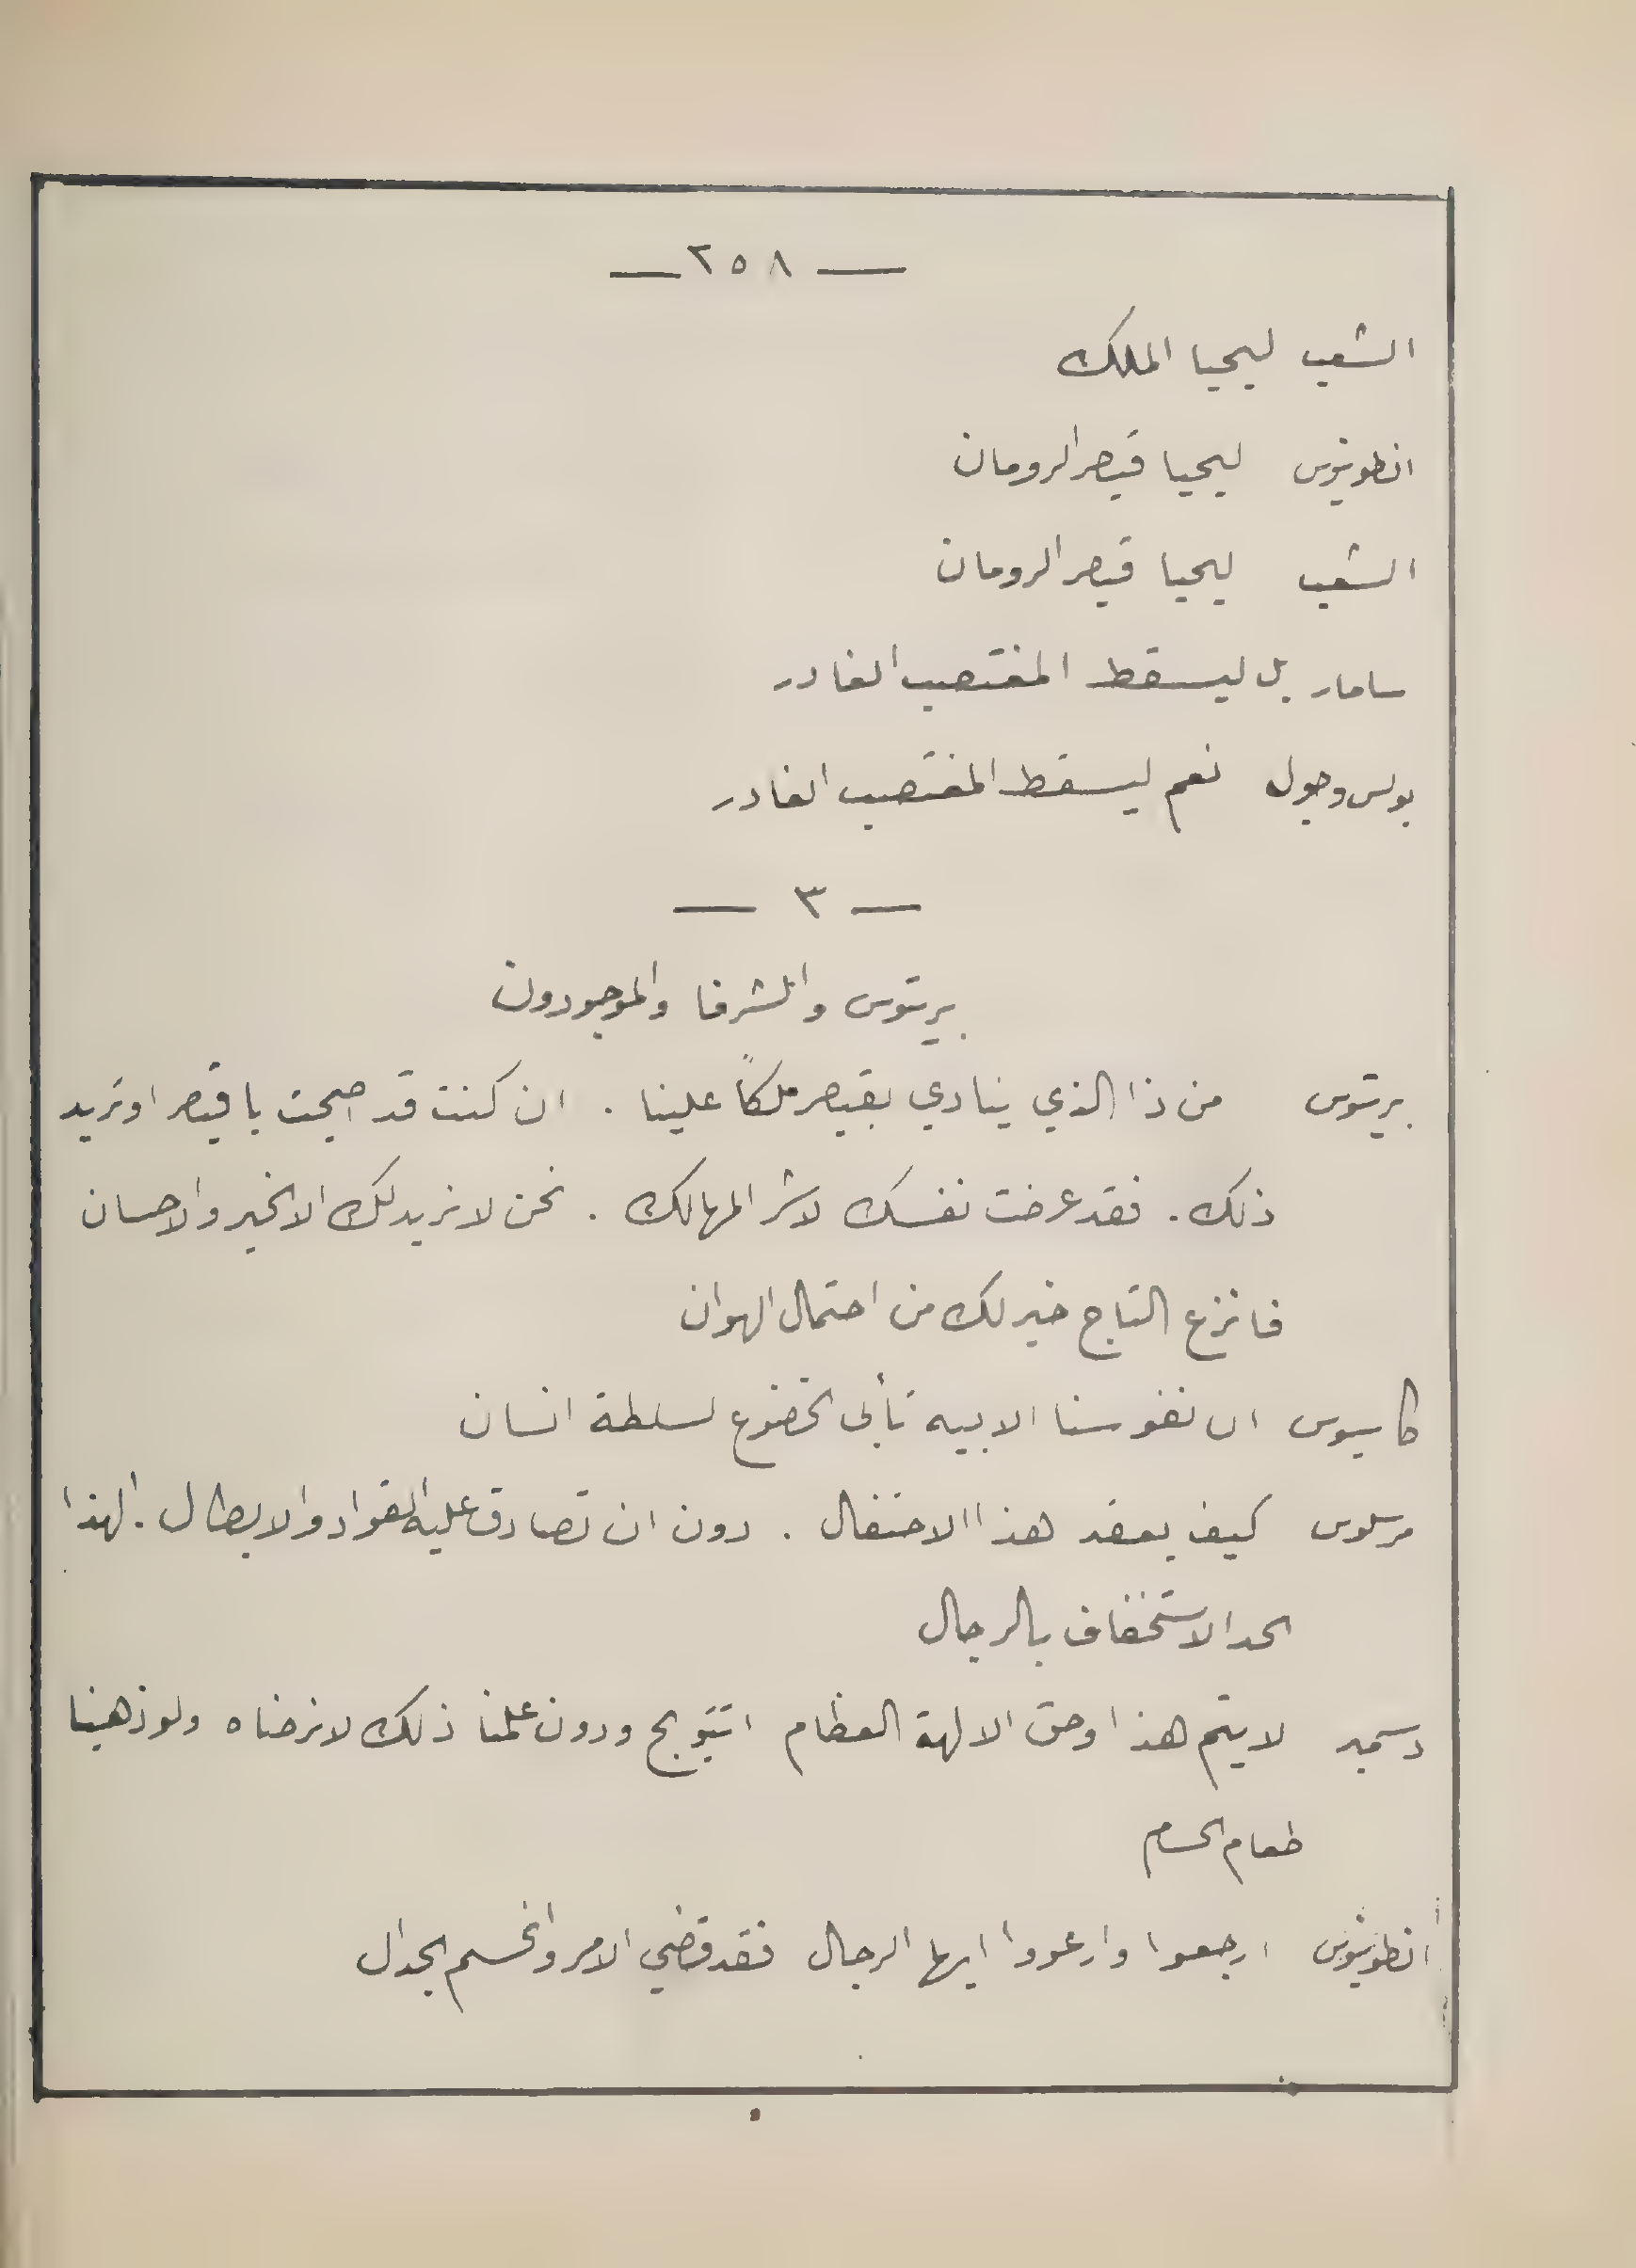 — ٢٥٨ —
الشعب ليحيا الملك
انطونيوس ليحيا قيصر الرومان
الشعب ليحيا قيصر الرومان
سامار بل ليسقط المغتصب الغادر
بولس وجول نعم ليسقط المغتصب الغادر
— ٣ —
بريتوس والشرفا والموجودون
بريتوس من ذا الذي ينادي بقيصر ملكاً علينا . ان كنت قد اصبحت يا قيصر او تريد
ذلك . فقد عرضت نفسك لاشر المهالك . نحن لا نريد لك الا الخير والاحسان
فانزع التاج خير لك من احتمال الهوان
كاسيوس ان نفوسنا الابيه تأبى الخضوع لسلطة انسان
مرسلوس كيف يعقد هذا الاحتفال . دون ان تصادق عليه القواد والابطال . الهذا
الحد الاستخفاف بالرجال
دسمير لا يتم هذا وحق الالهة العظام اتتويج ودون علمنا ذلك لا نرضاه ولو ذهبنا
طعام الحسام
انطونيوس ارجعوا وارعووا ايها الرجال فقد قضي الامر وانحسم الجدال